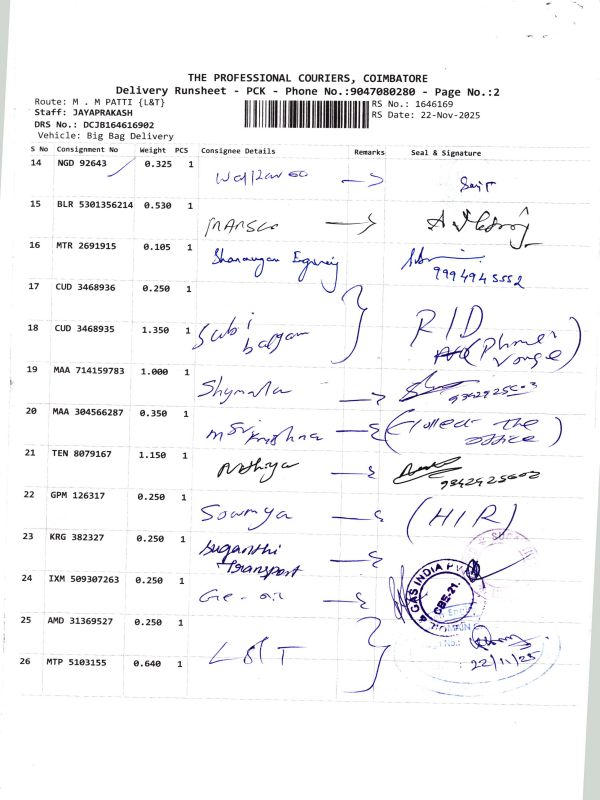 THE PROFESSIONAL COURIERS, COIMBATORE
Delivery Runsheet - PCK - Phone No.:9047080280 - Page No.:2
Route: M . M PATTI {L&T}
RS No.: 1646169
Staff: JAYAPRAKASH
RS Date: 22-Nov-2025
DRS No.: DCJB164616902
Vehicle: Big Bag Delivery
S No Consignment No Weight PCS Consignee Details Remarks Seal & Signature
14 NGD 92643 0.325 1
15 BLR 5301356214 0.530 1
TRANSCO
16 MTR 2691915 0.105 1
9994945552
17 CUD 3468936 0.250 1
18 CUD 3468935 1.350 1 Sabi R/D
19 MAA 714159783 1.000 1
Shymala
20 MAA 304566287 0.350 1
M Sri Krishna (Collect the office)
21 TEN 8079167 1.150 1
Nithya
22 GPM 126317 0.250 1
Sowmya (H/R)
23 KRG 382327 0.250 1
Suganthi
Transport
24 IXM 509307263 0.250 1
& GAS INDIA PV
CBE-21.
25 AMD 31369527 0.250 1
26 MTP 5103155 0.640 1
L&T
22/11/25